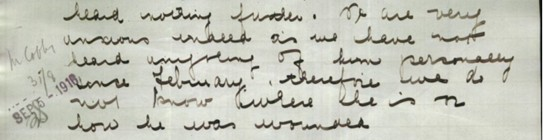 heard nothing further. We are very
anxious indeed as we have not
heard anything of him personally
since February, therefore we do
not know where he is or
how he was wounded
Mr Cobbs
3/9
SEP 1918